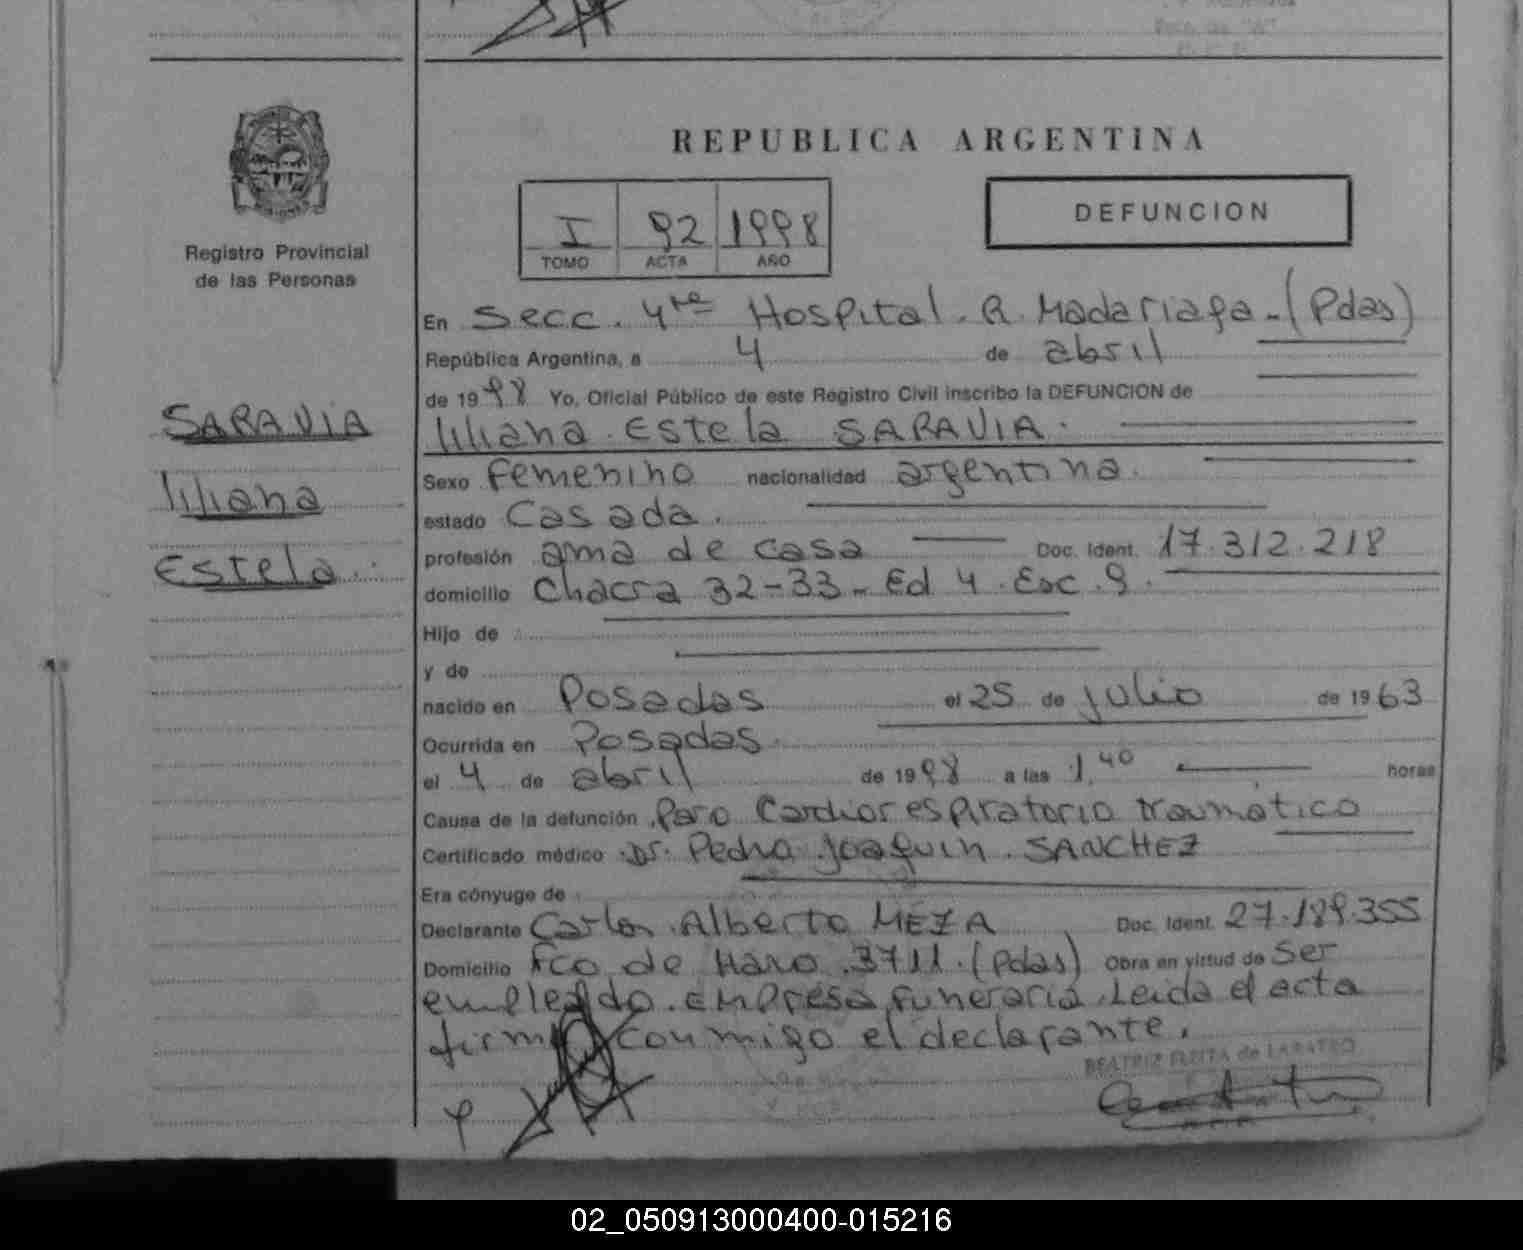 REPUBLICA ARGENTINA
I 92 1998
TOMO ACTA AÑO
DEFUNCION
Registro Provincial
de las Personas
SARAVIA
liliana
Estela
En Secc. 4ta Hospital. R. Madariaga - (Pdas)
República Argentina, a 4 de abril
de 1998 Yo, Oficial Público de este Registro Civil inscribo la DEFUNCION de
liliana Estela SARAVIA.
Sexo femenino nacionalidad argentina.
estado Casada.
profesión ama de casa Doc. Ident. 17.312.218
domicilio Chacra 32-33 - Ed 4. Esc. 9.
Hijo de
y de
nacido en Posadas el 25 de julio de 1963
Ocurrida en Posadas.
el 4 de abril de 1998 a las 1,40 horas
Causa de la defunción Paro Cardiorespiratorio traumático
Certificado médico Dr. Pedro Joaquin. SANCHEZ
Era cónyuge de
Declarante Carlos Alberto MEZA Doc. Ident. 27.189.355
Domicilio Fco de Haro 3711. (Pdas) Obra en virtud de ser
empleado. Empresa funeraria. Leida el acta
firma conmigo el declarante.
BEATRIZ
02_050913000400-015216